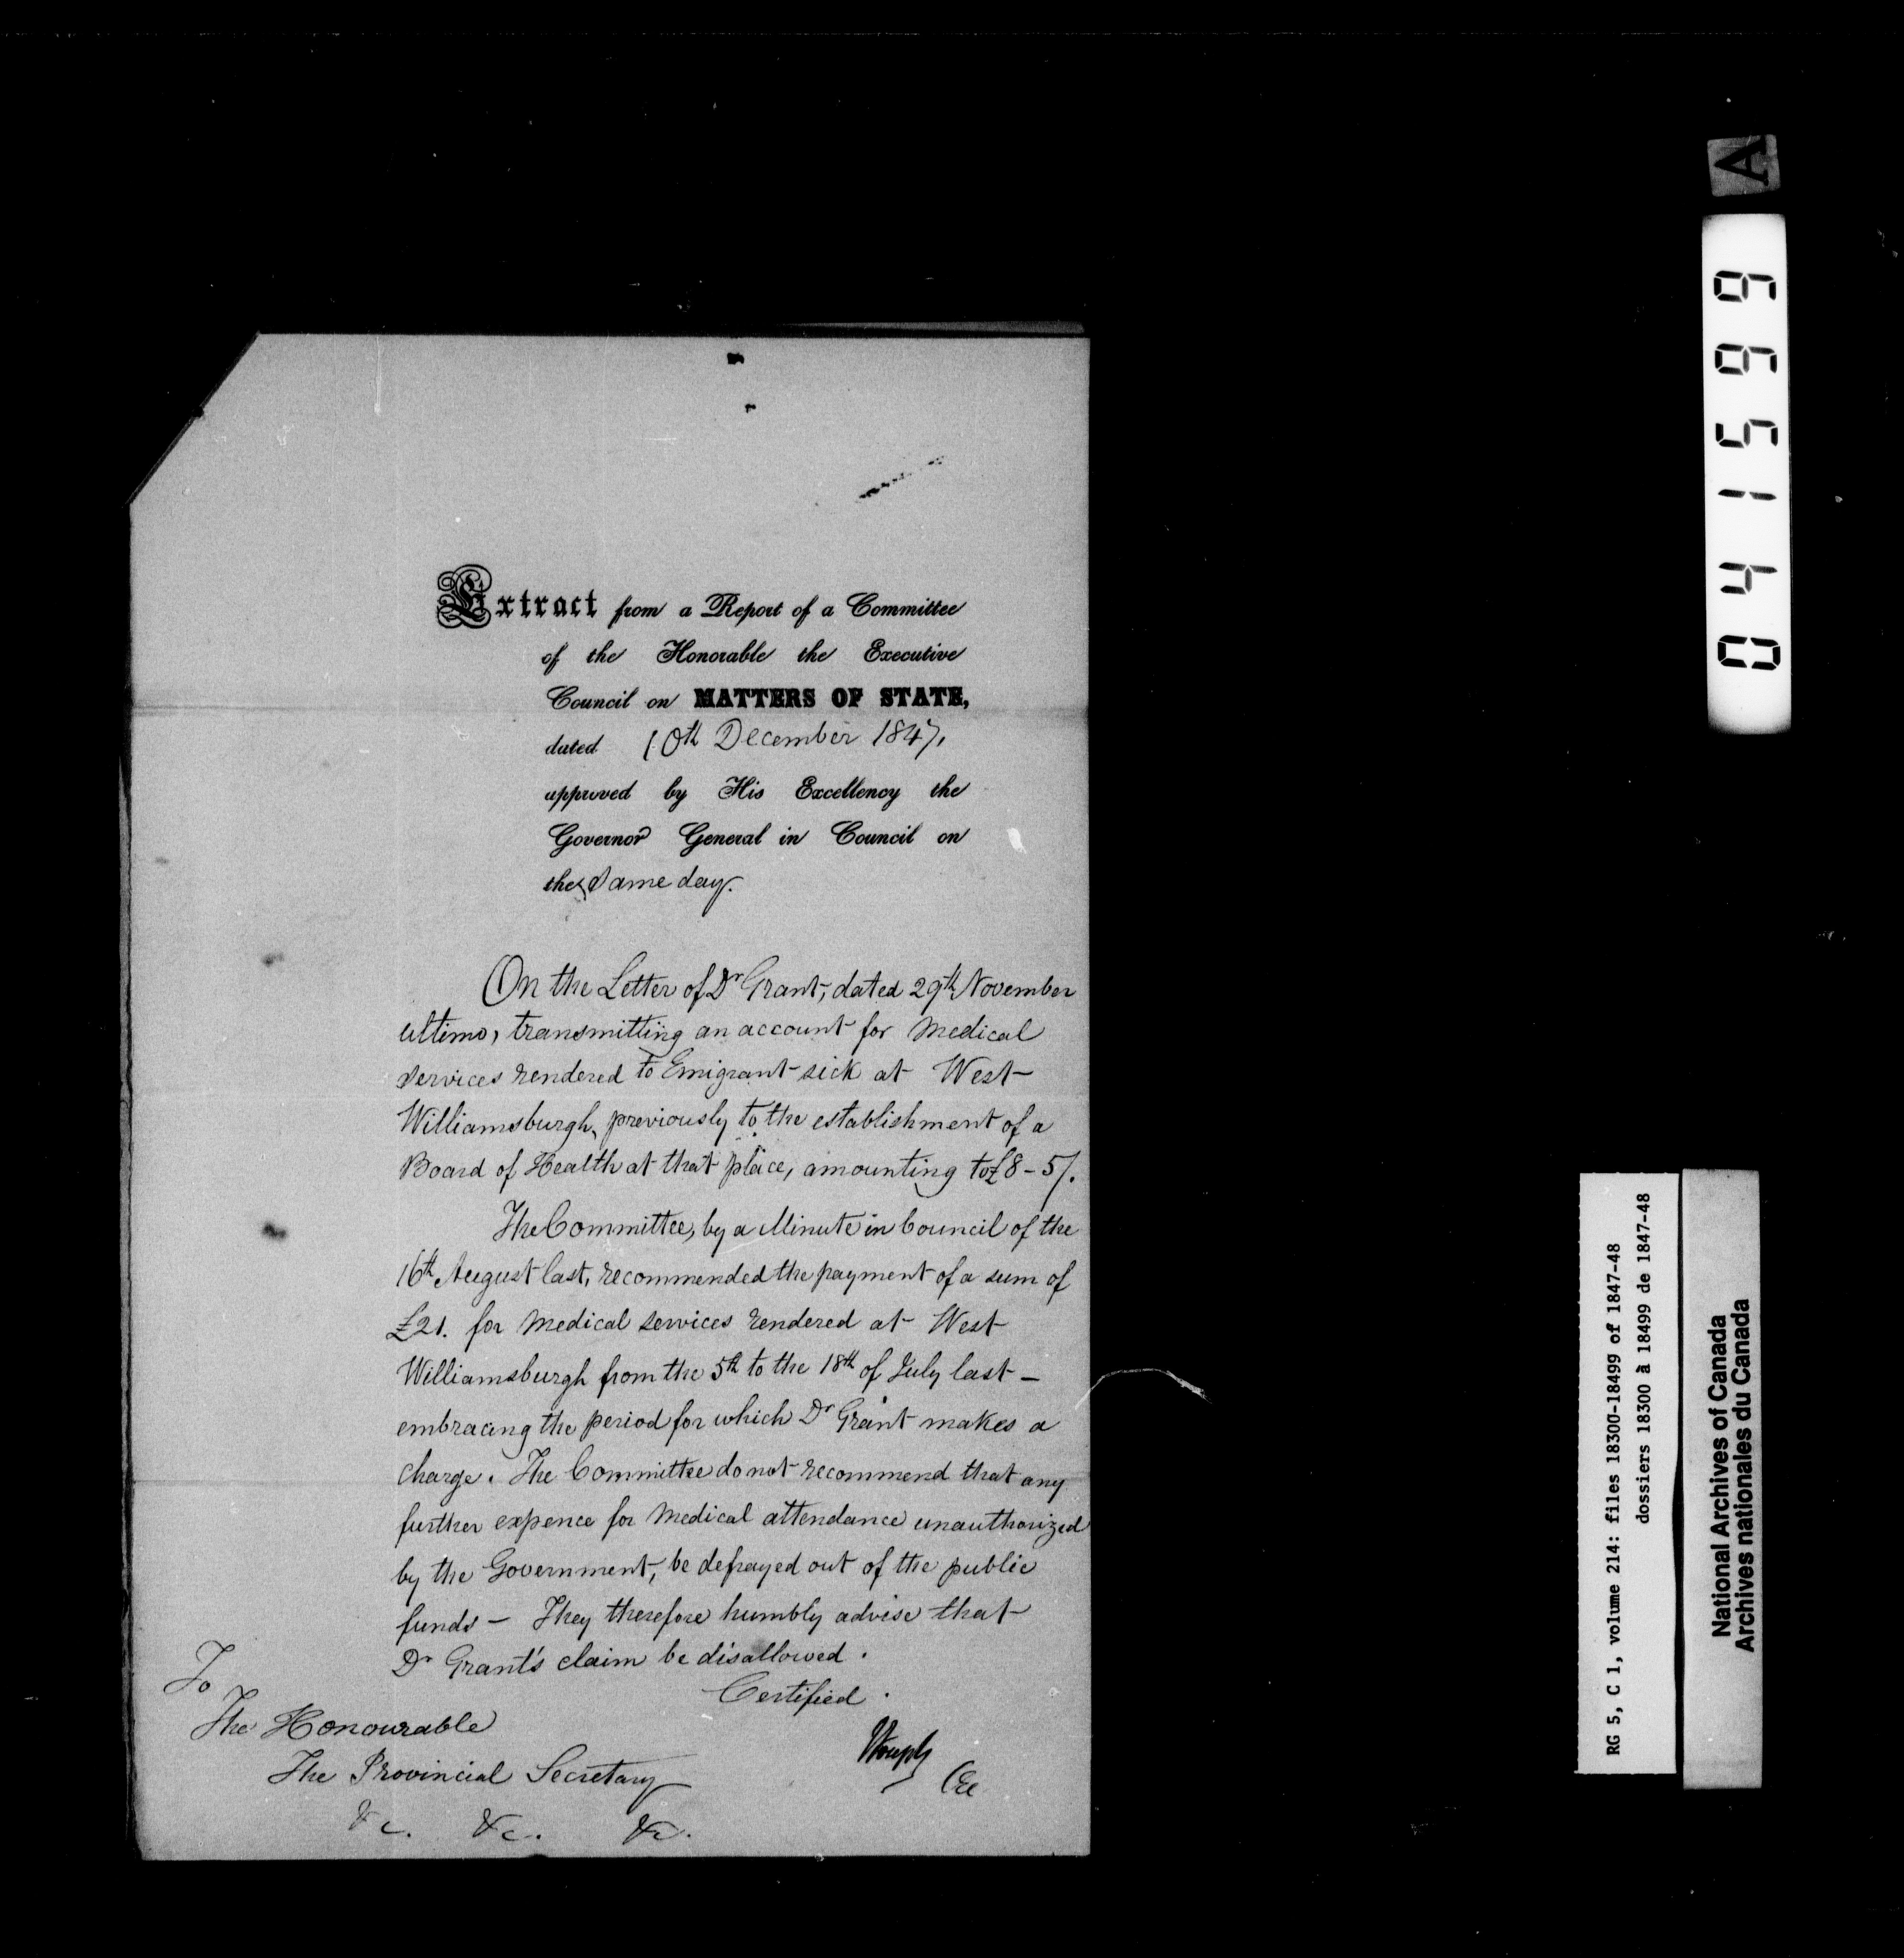 Extract from a Report of a Committee
of the Honorable the Executive
Council on MATTERS OF STATE,
dated 10th December 1847,
approved by His Excellency the
Governor General in Council on
the same day.
On the Letter of Dr Grant, dated 29th November
ultimo, transmitting an account for Medical
services rendered to Emigrant sick at West
Williamsburgh, previously to the establishment of a
Board of Health at that place, amounting to £8-5/.
The Committee, by a Minute in Council of the
16th August last, recommended the payment of a sum of
£21. for Medical services rendered at West
Williamsburgh from the 5th to the 18th of July last –
embracing the period for which Dr Grant makes a
charge. The Committee do not recommend that any
further expence for Medical attendance unauthorized
by the Government, be defrayed out of the public
funds – They therefore humbly advise that
Dr Grant's claim be disallowed.
Certified.
To
The Honourable
The Provincial Secretary
&c. &c. &c.
A
0451566
RG 5, C 1, volume 214: files 18300-18499 of 1847-48
dossiers 18300 à 18499 de 1847-48
National Archives of Canada
Archives nationales du Canada